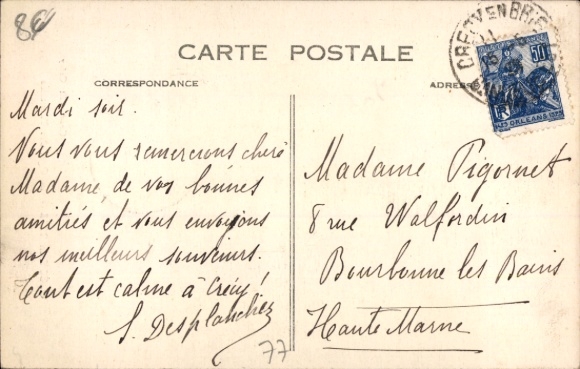 86
CARTE POSTALE
CORRESPONDANCE
ADRES
CRECY EN BRIE
50c
ORLEANS
Mardi soir.
Nous vous remercions chère
Madame, de vos bonnes
amitiés et vous envoyons
nos meilleurs souvenirs.
Tout est calme à Crécy!
S. Desplanches
77
Madame Pigornet
8 rue Walfordin
Bourbonne les Bains
Haute Marne